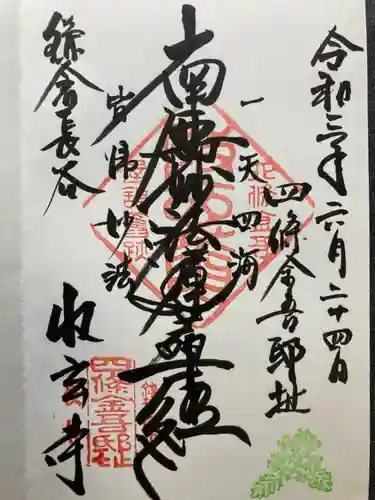 令和三年六月二十四日
四條金吾邸址
一天四海
南無妙法蓮華経
皆帰妙法
鎌倉長谷
收玄寺
四條金吾邸址